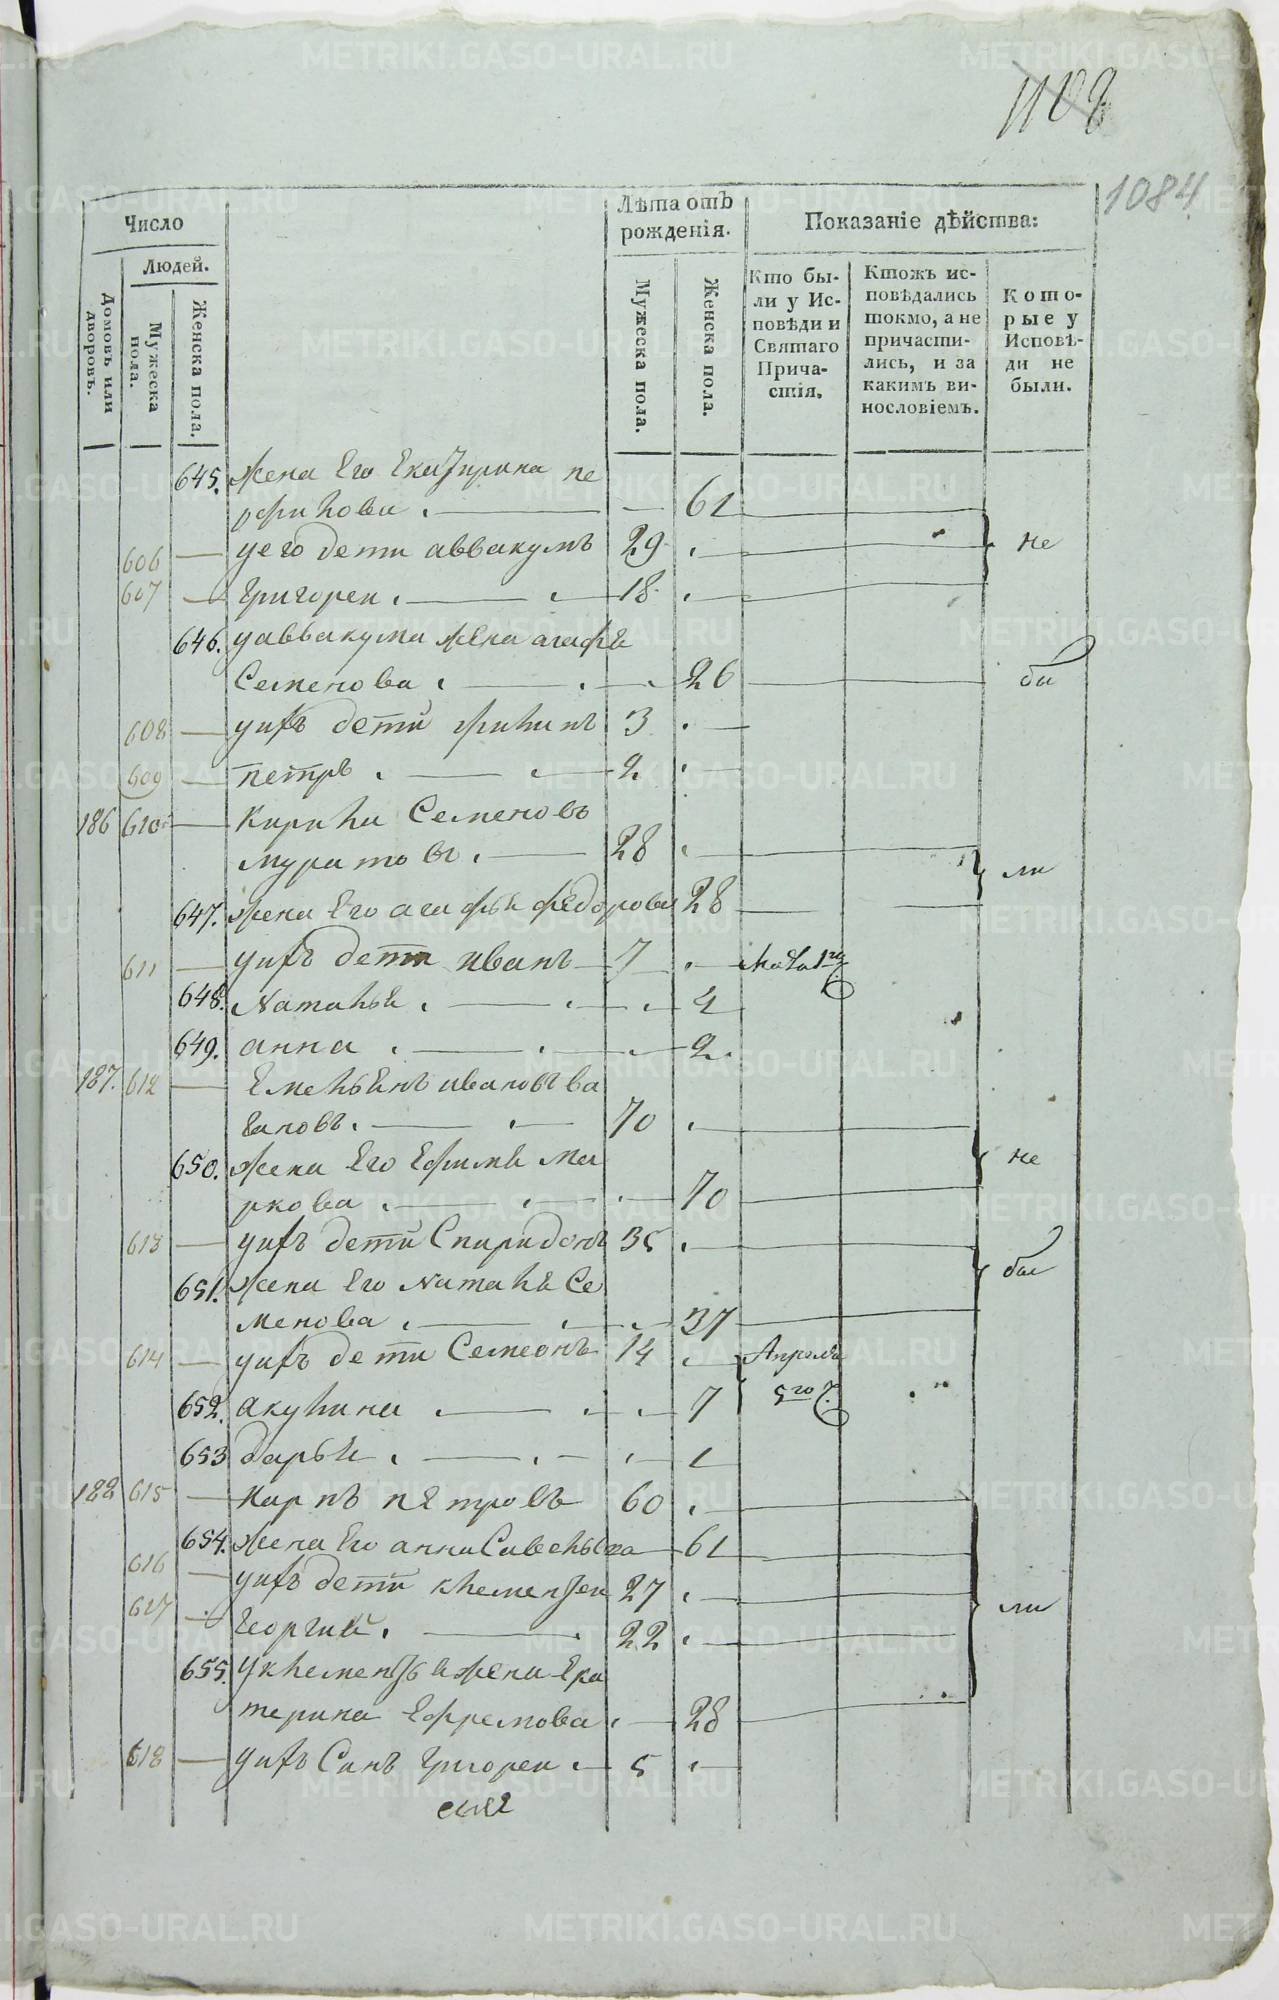 1108
1084
Число
Людей.
Домовъ или дворовъ.
Мужеска пола.
Женска пола.
Лѣта отъ рожденія.
Мужеска пола.
Женска пола.
Показаніе дѣйства:
Кто бы-
ли у Ис-
повѣди и
Святаго
Прича-
стія.
Ктожъ ис-
повѣдались
токмо, а не
причасти-
лись, и за
какимъ ви-
нословіемъ.
Кото-
рые у
Исповѣ-
ди не
были.
645. жена Его Екатирина пе
рфилова 61
606 у его дети аввакумъ 29 не
607 Григореи 18
646. у аввакума жена агафья
Семенова 26 бы
608 у ихъ дети филипъ 3
609 петръ 2
186 610 Кирила Семеновъ
муратовъ 28 ли
647. жена Его агафья федорова 28
611 у ихъ дети иванъ 7
648. Наталья 4
649. анна 2
187. 612 Емельянъ ивановъ ва
гановъ 70
650. жена Его Ефимья ма не
ркова 70
613 у ихъ дети Спиридонъ 35
651. жена Его Наталья Се бы
менова 37
614 у ихъ дети Семеонъ 14 Апреля
652. акулина 7 5го
653 дарья 1
188 615 Карпъ петровъ 60
654. жена Его анна Савельева 61
616 у ихъ дети клементеи 27
617 Георгии 22 ли
655. у клементья жена Ека
терина Ефремова 28
618 у ихъ Сынъ Григореи 5
METRIKI.GASO-URAL.RU